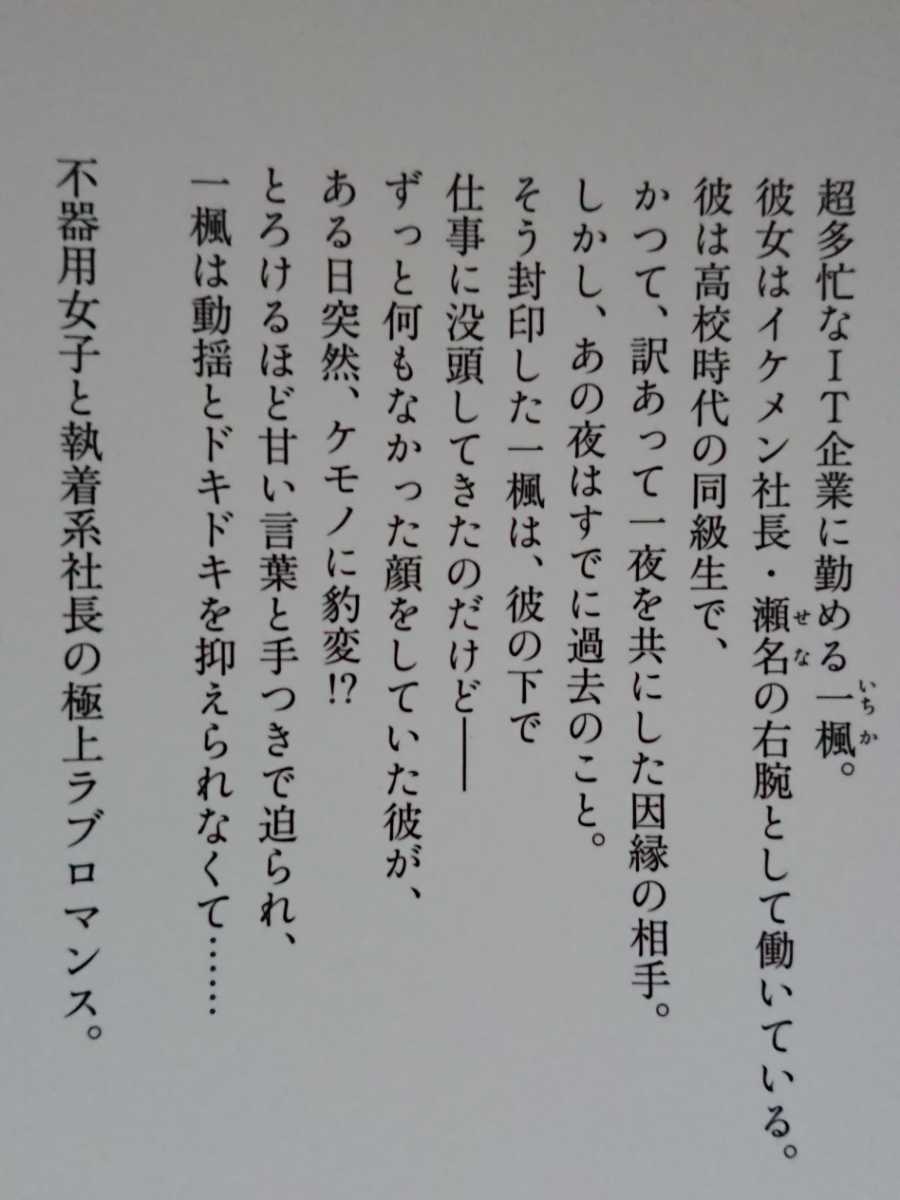 超多忙なＩＴ企業に勤める一楓。
彼女はイケメン社長・瀬名の右腕として働いている。
彼は高校時代の同級生で、
かつて、訳あって一夜を共にした因縁の相手。
しかし、あの夜はすでに過去のこと。
そう封印した一楓は、彼の下で
仕事に没頭してきたのだけど――
ずっと何もなかった顔をしていた彼が、
ある日突然、ケモノに豹変!?
とろけるほど甘い言葉と手つきで迫られ、
一楓は動揺とドキドキを抑えられなくて……
不器用女子と執着系社長の極上ラブロマンス。
いちか
せな